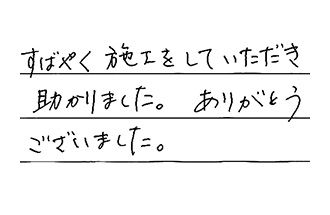 すばやく施工をしていただき
助かりました。 ありがとう
ございました。